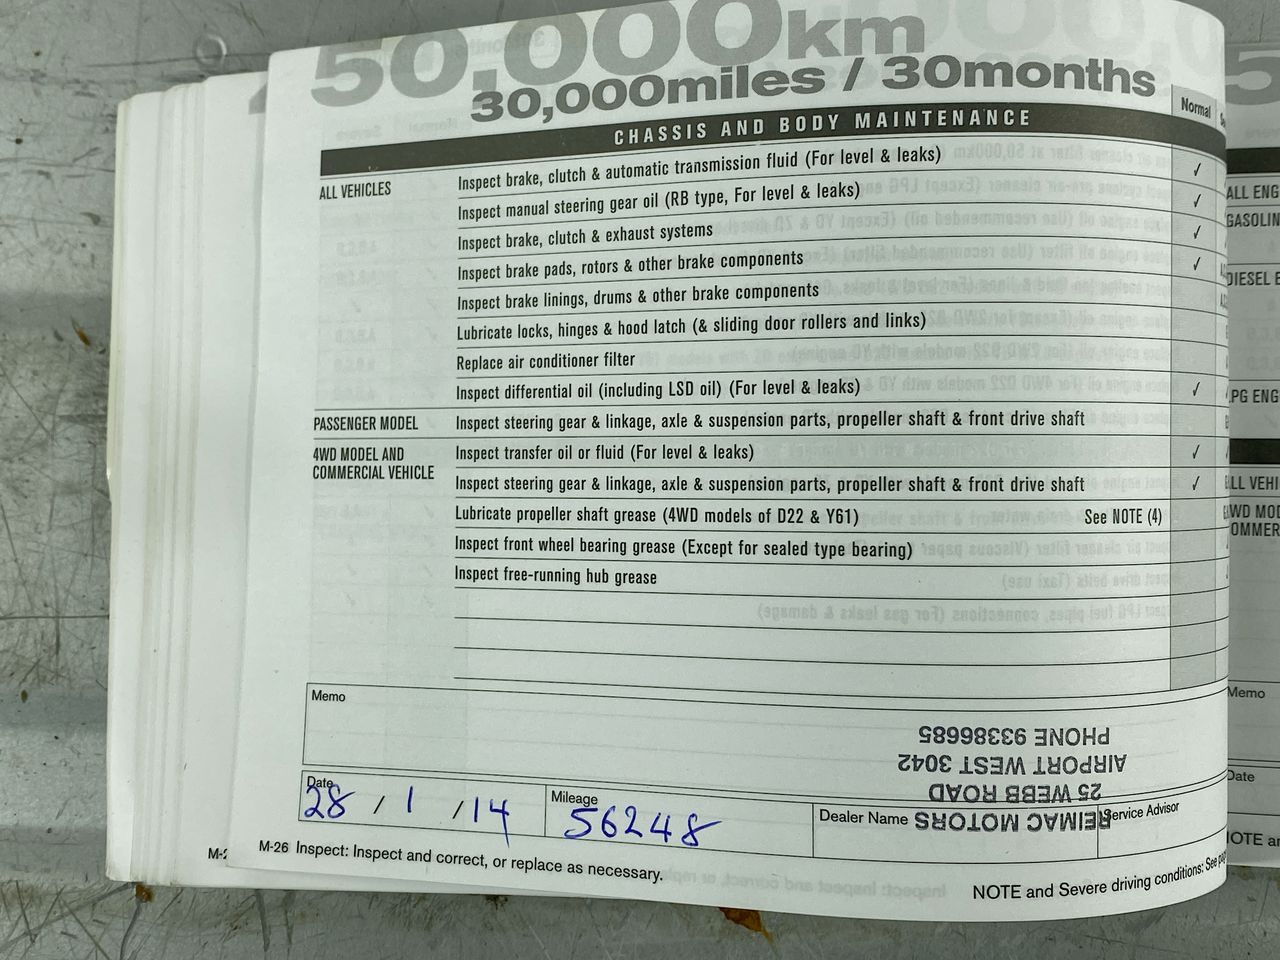 50,000km
30,000miles / 30months
Normal
CHASSIS AND BODY MAINTENANCE
ALL VEHICLES
Inspect brake, clutch & automatic transmission fluid (For level & leaks) ✓
Inspect manual steering gear oil (RB type, For level & leaks) ✓
Inspect brake, clutch & exhaust systems ✓
Inspect brake pads, rotors & other brake components ✓
Inspect brake linings, drums & other brake components
Lubricate locks, hinges & hood latch (& sliding door rollers and links)
Replace air conditioner filter
Inspect differential oil (including LSD oil) (For level & leaks) ✓
PASSENGER MODEL Inspect steering gear & linkage, axle & suspension parts, propeller shaft & front drive shaft
4WD MODEL AND
COMMERCIAL VEHICLE
Inspect transfer oil or fluid (For level & leaks) ✓
Inspect steering gear & linkage, axle & suspension parts, propeller shaft & front drive shaft ✓
Lubricate propeller shaft grease (4WD models of D22 & Y61) See NOTE (4)
Inspect front wheel bearing grease (Except for sealed type bearing)
Inspect free-running hub grease
Memo
REIMAC MOTORS
25 WEBB ROAD
AIRPORT WEST 3042
PHONE 93386685
Date
28 / 1 / 14
Mileage
56248
Dealer Name
Service Advisor
M-26 Inspect: Inspect and correct, or replace as necessary.
NOTE and Severe driving conditions: See
ALL ENG
GASOLIN
DIESEL E
LPG ENG
ALL VEHI
Memo
Date